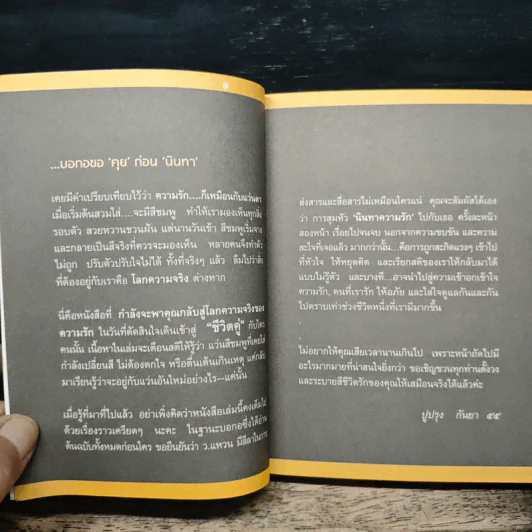 ...บอกอขอ 'คุย' ก่อน 'นินทา'
เคยมีคำเปรียบเทียบไว้ว่า ความรัก....ก็เหมือนกับแว่นตา
เมื่อเริ่มต้นสวมใส่....จะมีสีชมพู ทำให้เรามองเห็นทุกสิ่ง
รอบตัว สวยหวานชวนฝัน แต่นานวันเข้า สีชมพูเริ่มจาง
และกลายเป็นสีจริงที่ควรจะมองเห็น หลายคนจึงทำตัว
ไม่ถูก ปรับตัวปรับใจไม่ได้ ทั้งที่จริงๆ แล้ว
ที่ต้องอยู่กับเราคือ โลกความจริง ต่างหาก
นี่คือหนังสือที่ กำลังจะพาคุณกลับสู่โลกความจริงของ
ความรัก ในวันที่ตัดสินใจเดินเข้าสู่ "ชีวิตคู่" กับใคร
คนนั้น เนื้อหาในเล่มจะเตือนสติให้รู้ว่า แว่นสีชมพูที่เคยใส่
กำลังจะเปลี่ยนสี ไม่ต้องตกใจ หรือตื่นเต้นเกินเหตุ แค่กลับ
มาเรียนรู้ว่าจะอยู่กับแว่นอันใหม่อย่างไร--แค่นั้น
เมื่อรู้ที่มาที่ไปแล้ว อย่าเพิ่งคิดว่าหนังสือเล่มนี้คงเต็มไป
ด้วยเรื่องราวเครียดๆ นะคะ ในฐานะบอกอซึ่งได้อ่าน
ต้นฉบับทั้งหมดก่อนใคร ขอยืนยันว่า ว.แหวน มีลีลาในการ
ส่งสารและสื่อสารไม่เหมือนใครแน่ คุณจะสัมผัสได้เอง
ว่า การสุมหัว 'นินทาความรัก' ไปกับเธอ ครั้งละหน้า
สองหน้า เรื่อยไปจนจบ นอกจากความขบขัน และความ
สะใจที่เจอแล้ว มากกว่านั้น...คือการถูกสะกิดแรงๆ เข้าไป
ที่หัวใจ ให้หยุดคิด และเรียกสติของเราให้กลับมาได้
แบบไม่รู้ตัว และบางที...อาจนำไปสู่ความเข้าอกเข้าใจ
ความรัก, คนที่เรารัก ให้อภัย และใส่ใจดูแลกันและกัน
ไปตราบเท่าช่วงชีวิตหนึ่งที่เรามีมากขึ้น
ไม่อยากให้คุณเสียเวลานานเกินไป เพราะหน้าถัดไปมี
อะไรมากมายที่น่าสนใจยิ่งกว่า ขอเชิญชวนทุกท่านตั้งวง
และระบายสีชีวิตรักของคุณให้เสมือนจริงได้แล้วค่ะ
ปูปรุง กันยา ๔๕